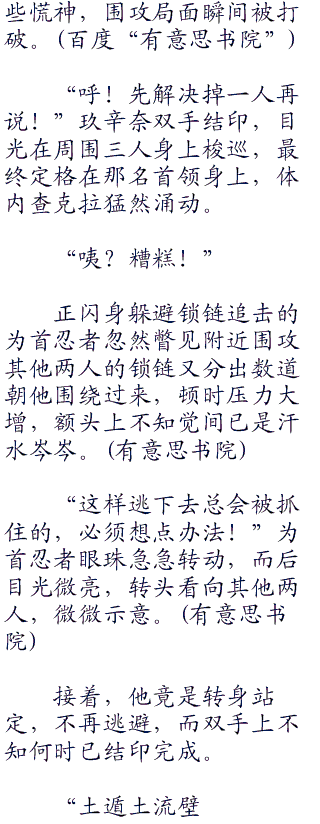 些慌神，围攻局面瞬间被打
破。(百度“有意思书院”)
“呼！先解决掉一人再
说！”玖辛奈双手结印，目
光在周围三人身上梭巡，最
终定格在那名首领身上，体
内查克拉猛然涌动。
“咦？糟糕！”
正闪身躲避锁链追击的
为首忍者忽然瞥见附近围攻
其他两人的锁链又分出数道
朝他围绕过来，顿时压力大
增，额头上不知觉间已是汗
水岑岑。(有意思书院)
“这样逃下去总会被抓
住的，必须想点办法！”为
首忍者眼珠急急转动，而后
目光微亮，转头看向其他两
人，微微示意。(有意思书
院)
接着，他竟是转身站
定，不再逃避，而双手上不
知何时已结印完成。
“土遁土流壁